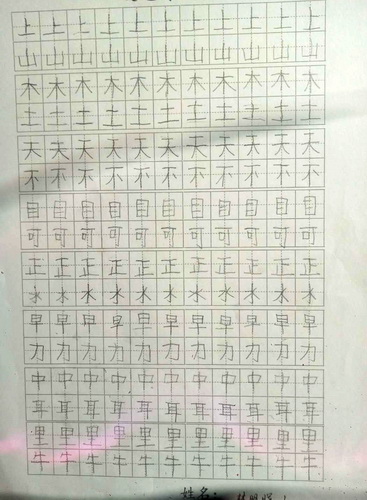 上上上上上上上上上上上
山山山山山山山山山山山
木木木木木木木木木木木
土土土土土土土土土土土
天天天天天天天天天天天
不不不不不不不不不不不
目目目目目目目目目目目
可可可可可可可可可可可
正正正正正正正正正正正
水水水水水水水水水水水
早早早早早早早早早早早
力力力力力力力力力力力
中中中中中中中中中中中
耳耳耳耳耳耳耳耳耳耳耳
里里里里里里里里里里里
牛牛牛牛牛牛牛牛牛牛牛
姓名: